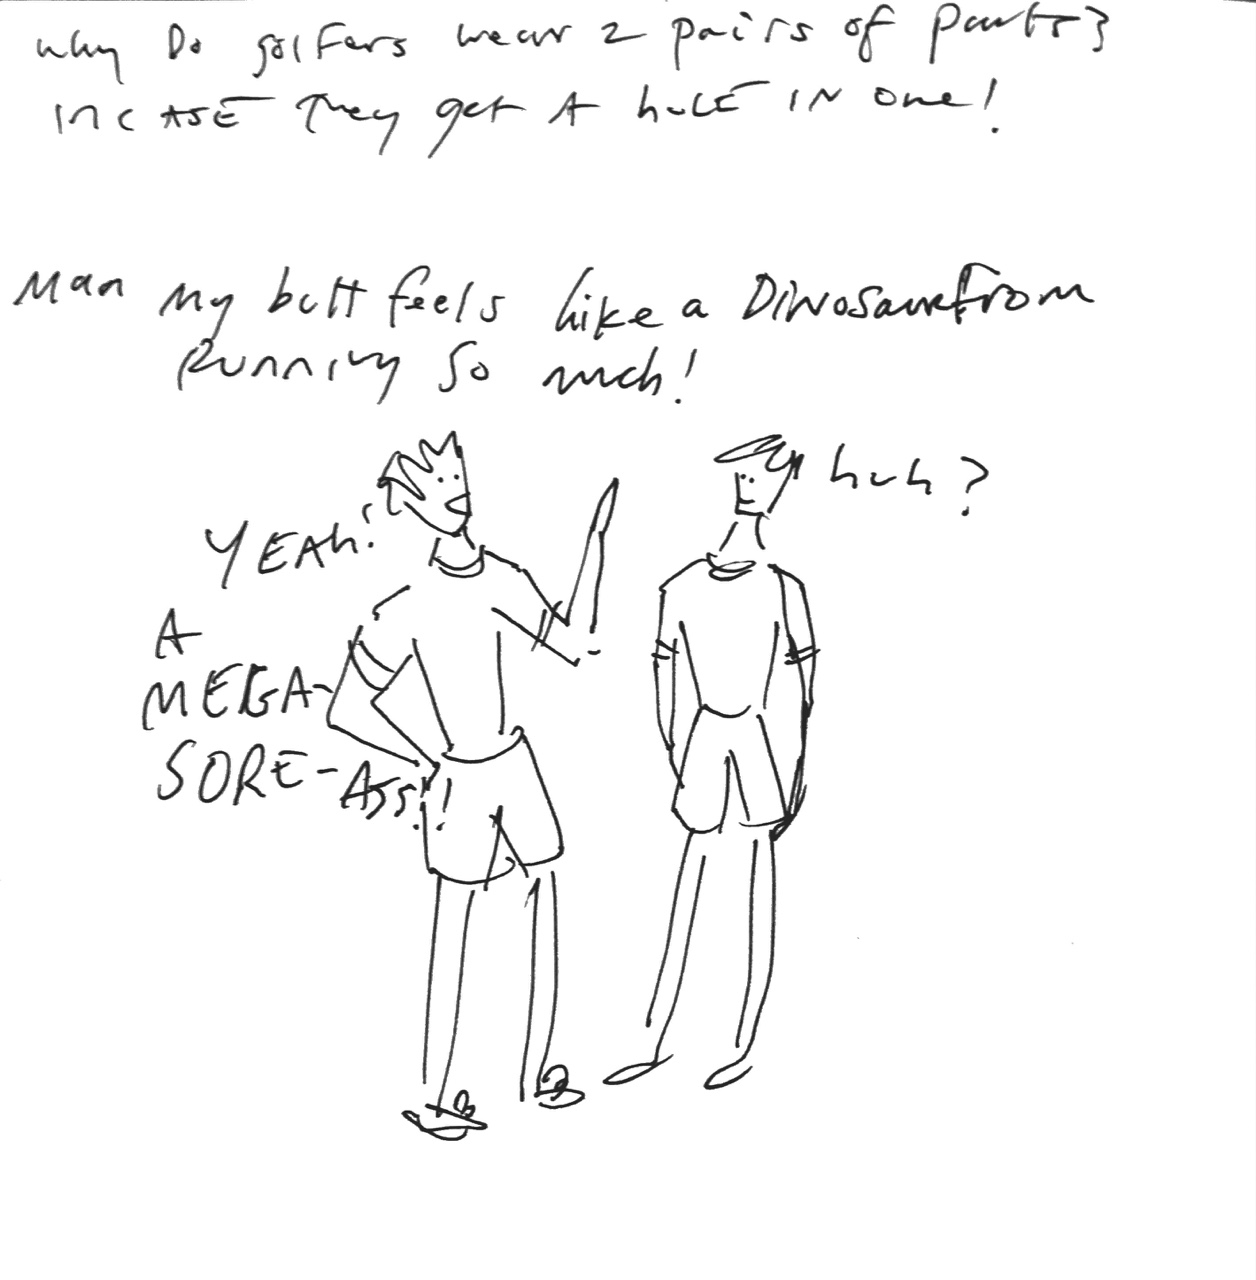 why Do golfers wear 2 pairs of pants?
INCASE They get A hOLE IN one!
Man My butt feels like a DINOSaur From
Running So much!
huh?
YEAh!
A
MEGA-
SORE-Ass!!